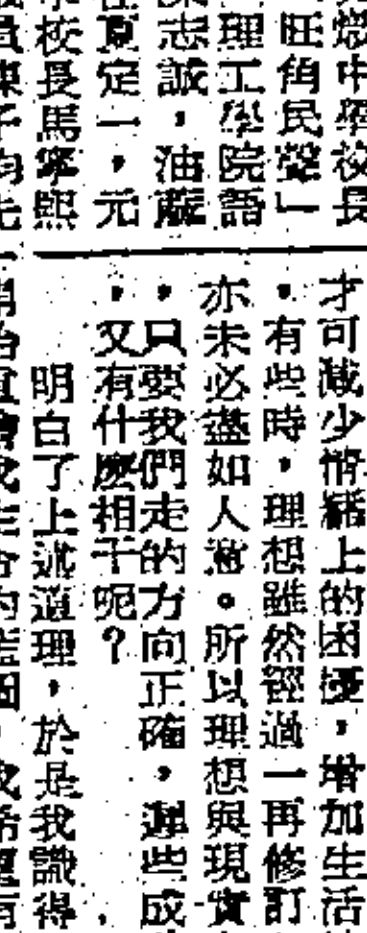 旺角民聲」
理工學院語
志誠，油蔴
定一，元
校長馬寧熙
才可減少情緒上的困擾，增加生活
，有些時，理想雖然經過一再修訂
亦未必盡如人意。所以理想與現實
，只要我們走的方向正確，遲些成
，又有什麼相干呢？
明白了上述道理，於是我識得